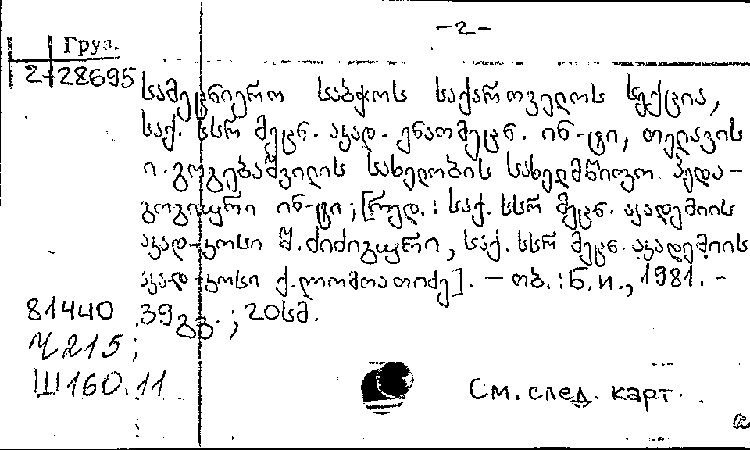 -2-
Груз.
2-28695
სამეცნიერო საბჭოს საქართველოს სექცია,
საქ. სსრ მეცნ. აკად. ენათმეცნ. ინ-ტი, თელავის
ი. გოგებაშვილის სახელობის სახელმწიფო პედა-
გოგიური ინ-ტი; [რედ.: საქ. სსრ მეცნ. აკადემიის
აკად-კოსი შ. ძიძიგური, საქ. სსრ მეცნ. აკადემიის
აკად-კოსი ქ. ლომთათიძე]. - თბ.: Б.и., 1981. -
81440 39 გვ.; 20სმ.
Ч215;
Ш160.11
См. след. карт.